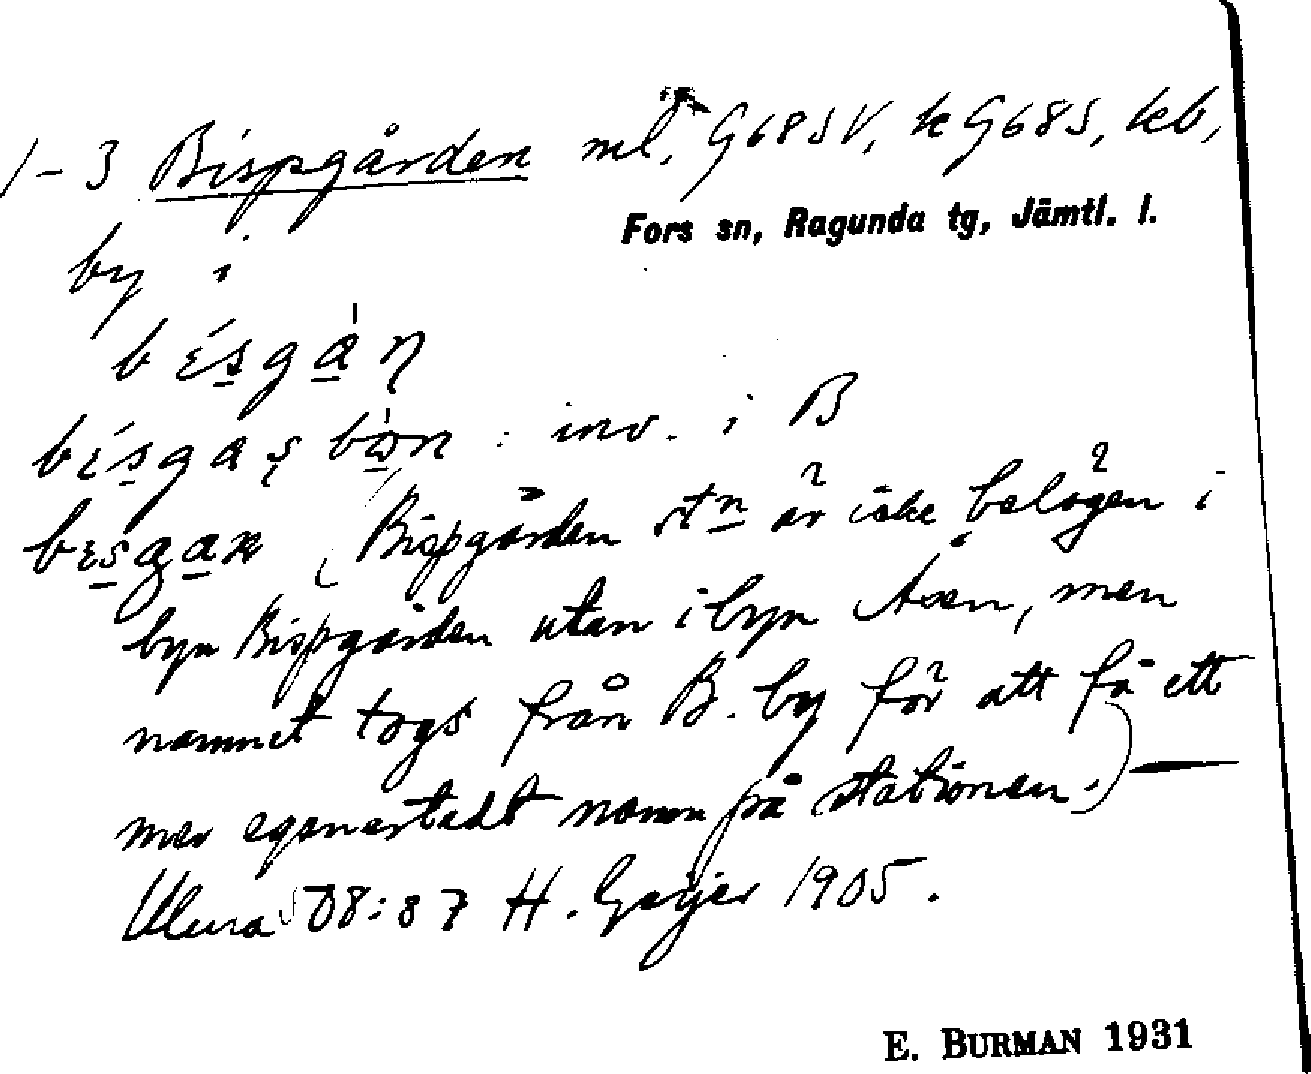 1-3 Bispgården ml. G68SV, k G68S, kb,
Fors sn, Ragunda tg, Jämtl. l.
by i
bésgàn
bísgas bòn : inv. i B
besgan (Bispgården stn är icke belägen i
byn Bispgården utan i byn Åsen, men
namnet togs från B. by för att få ett
mer egenartadt namn på stationen.) —
Ulma 508:87 H. Geijer 1905.
E. BURMAN 1931